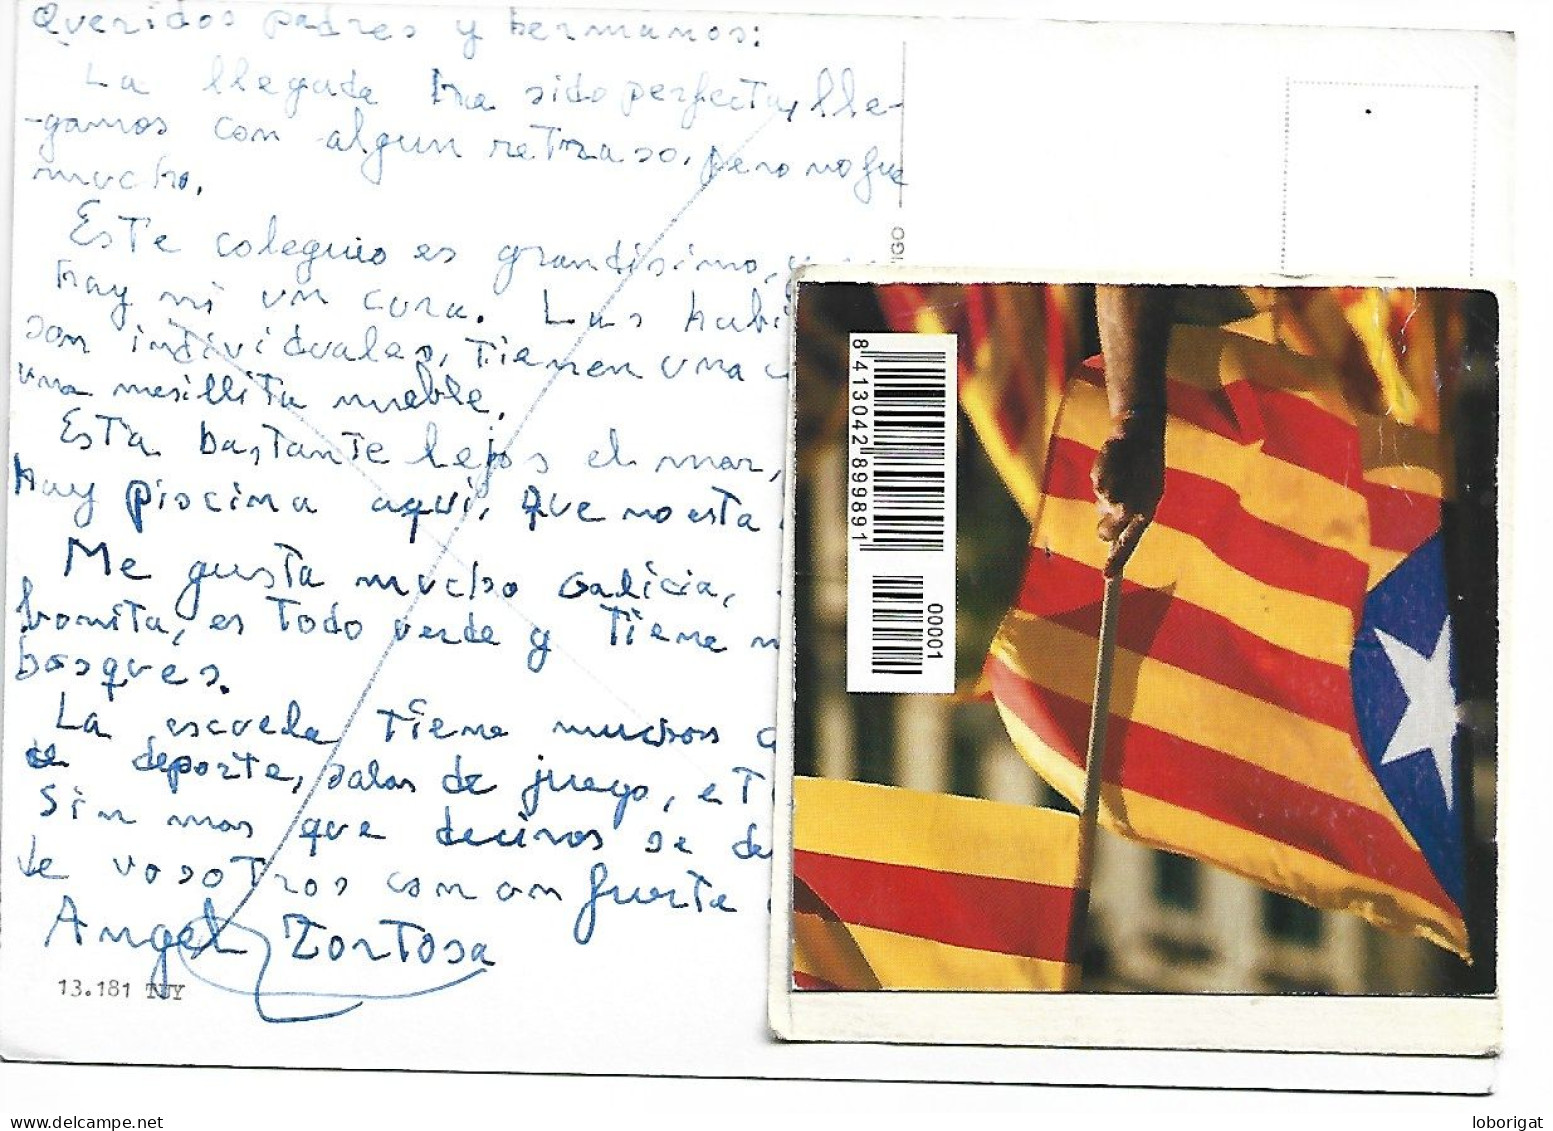 Queridos padres y hermanos:
La llegada ha sido perfecta, lle-
-gamos con algun retraso, pero no fue
mucho.
Este coleguio es grandisimo, y
hay ni un cura. Las habi
son individuales, tienen una c
una mesillita mueble.
Esta bastante lejos el mar,
hay piscina aqui, que no esta
Me gusta mucho Galicia,
bonita, es todo verde y tiene m
bosques.
La escuela tiene muchos c
de deporte, salas de juego, et
Sin mas que deciros se de
de vosotros con un fuerte
Angel Tortosa
13.181 TUY
VIGO
8 413042 899891
00001
loborigat